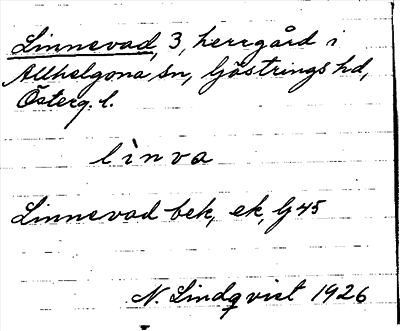 Linnevad, 3, herrgård i
Allhelgona sn, Göstrings hd,
Österg. l.
lìnva
Linnevad bek, ek, G 45
N. Lindqvist 1926